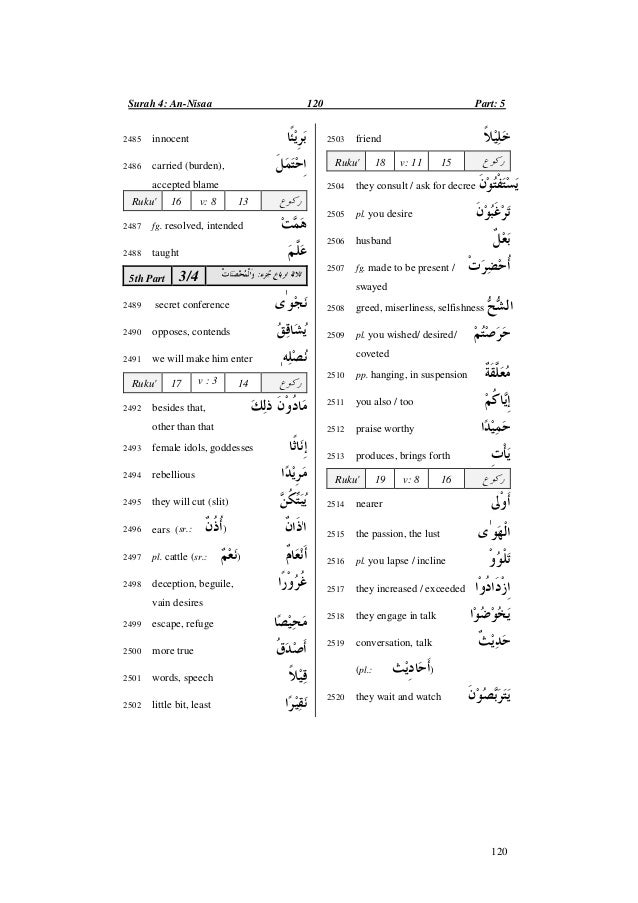 Surah 4: An-Nisaa 120 Part: 5
2485 innocent بَرِيْئًا
2486 carried (burden), اِحْتَمَلَ
accepted blame
Ruku' 16 v: 8 13 ركوع
2487 fg. resolved, intended هَمَّتْ
2488 taught عَلَّمَ
5th Part 3/4
2489 secret conference نَجْوٰى
2490 opposes, contends يُشَاقِقُ
2491 we will make him enter نُصْلِهٖ
Ruku' 17 v : 3 14 ركوع
2492 besides that, مَادُوْنَ ذٰلِكَ
other than that
2493 female idols, goddesses اِنَاثًا
2494 rebellious مَرِيْدًا
2495 they will cut (slit) يُبَتِّكُنَّ
2496 ears (sr.: أُذُنٌ) اٰذَانٌ
2497 pl. cattle (sr.: نَعْمٌ) أَنْعَامٌ
2498 deception, beguile, غُرُوْرًا
vain desires
2499 escape, refuge مَحِيْصًا
2500 more true أَصْدَقُ
2501 words, speech قِيْلاً
2502 little bit, least نَقِيْرًا
2503 friend خَلِيْلاً
Ruku' 18 v: 11 15 ركوع
2504 they consult / ask for decree يَسْتَفْتُوْنَ
2505 pl. you desire تَرْغَبُوْنَ
2506 husband بَعْلٌ
2507 fg. made to be present / أُحْضِرَتْ
swayed
2508 greed, miserliness, selfishness الشُّحُّ
2509 pl. you wished/ desired/ حَرَصْتُمْ
coveted
2510 pp. hanging, in suspension مُعَلَّقَةٌ
2511 you also / too إِيَّاكُمْ
2512 praise worthy حَمِيْدًا
2513 produces, brings forth يَأْتِ
Ruku' 19 v: 8 16 ركوع
2514 nearer أَوْلٰى
2515 the passion, the lust الْهَوٰى
2516 pl. you lapse / incline تَلْوُوْ
2517 they increased / exceeded اِزْدَادُوْا
2518 they engage in talk يَخُوْضُوْا
2519 conversation, talk حَدِيْثٌ
(pl.: أَحَادِيْثُ)
2520 they wait and watch يَتَرَبَّصُوْنَ
120